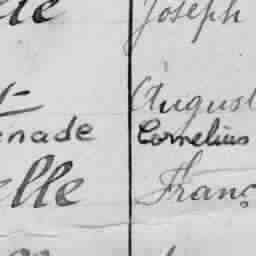 Joseph
August
enade Cornelius
elle Franç